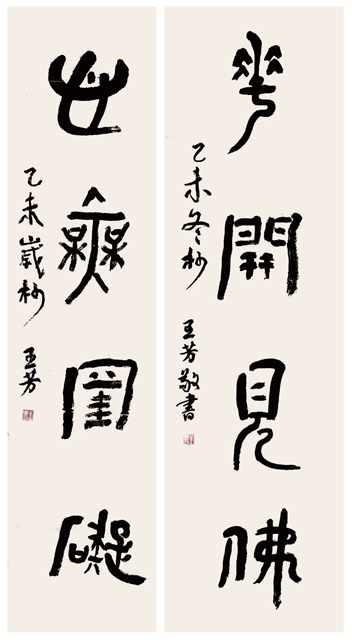 華開見佛
乙未冬杪 王芳敬書
無罣礙
乙未歲杪 王芳